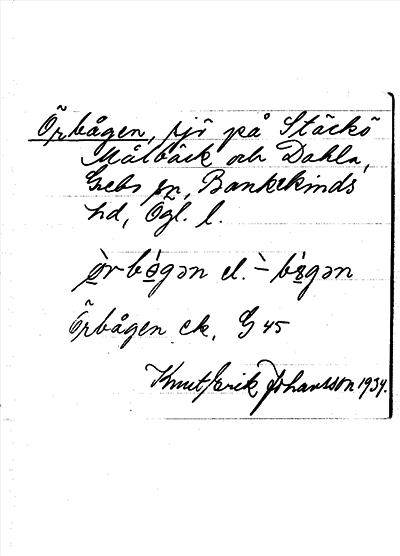 Örbågen, sjö på Stäckö
Målbäck och Dahla,
Grebo sn, Bankekinds
hd, Ögl. l.
ò̤rbó̤gən el. ̀- bó̤gən
Örbågen ek. G 45
Knut Erik Johansson 1934.